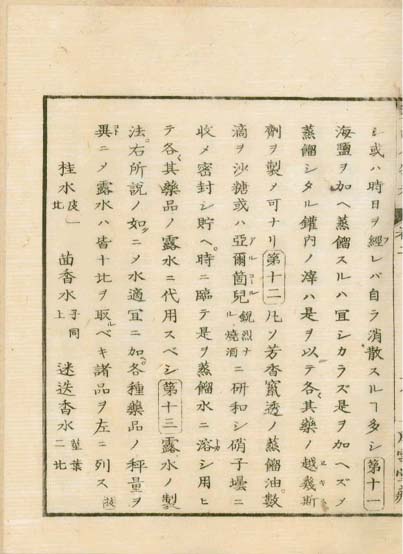 シ或ハ時日ヲ經レバ自ラ消散スルヿ多シ第十一
海鹽ヲ加ヘ蒸餾スルハ宜シカラズ是ヲ加ヘズメ
蒸餾シタル鑵内ノ滓ハ是ヲ以テ各其藥ノ越幾斯
劑ヲ製メ可ナリ第十二凡ソ芳香竄透ノ蒸餾油數
滴ヲ沙糖或ハ亞爾箇兒鋭烈ナル燒酒ニ研和シ硝子壜ニ
收メ密封シ貯ヘ時ニ臨テ是ヲ蒸餾水ニ溶シ用ヒ
テ各其藥品ノ露水ニ代用スベシ第十三露水ノ製
法右所說ノ如クニメ水適宜ニ加各種藥品ノ秤量ヲ
異ニメ露水ハ皆十比ヲ取ルベキ諸品ヲ左ニ列ス
桂水皮一比 茴香水子同上 迷迭香水莖葉二比